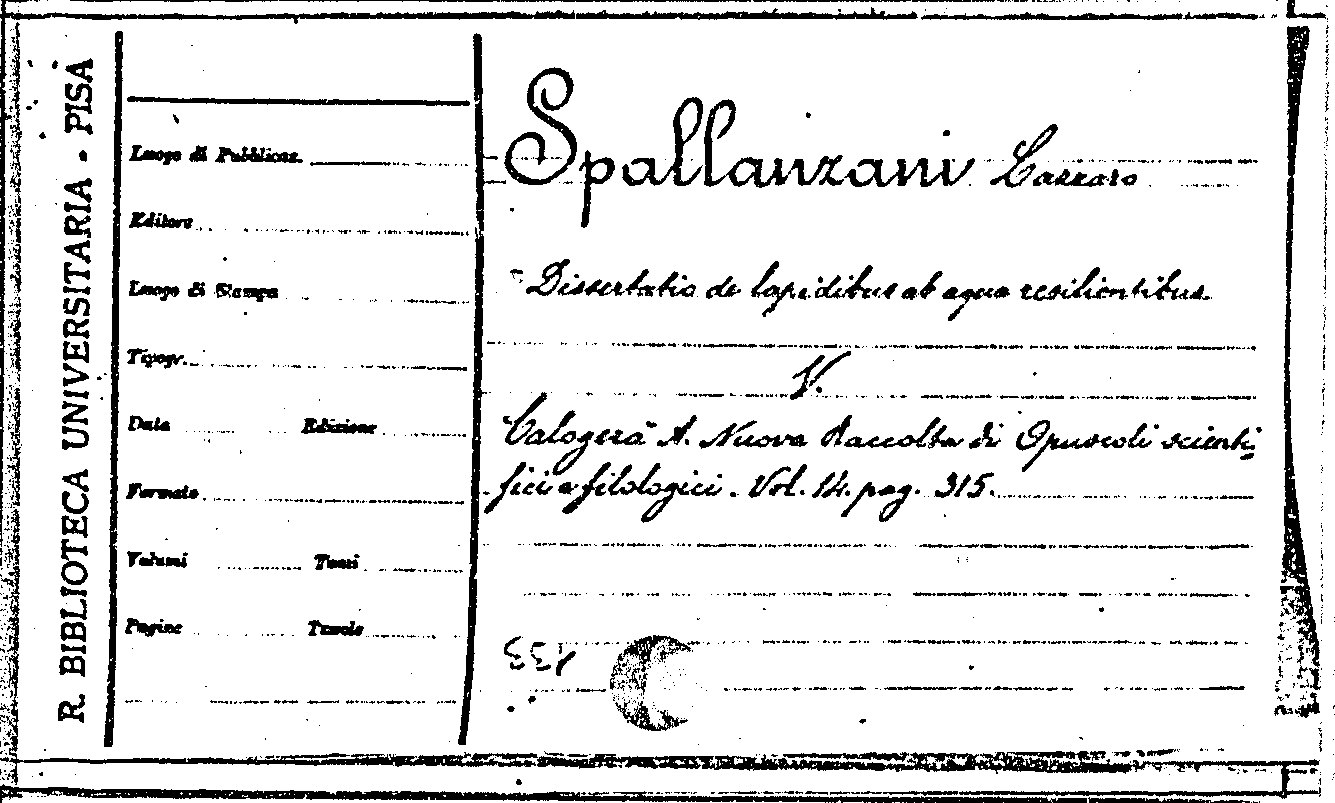 R. BIBLIOTECA UNIVERSITARIA - PISA
Luogo di Pubblicaz.
Editore
Luogo di Stampa
Tipogr.
Data Edizione
Formato
Volumi Tomi
Pagine Tavole
Spallanzani Lazzaro
Dissertatio de lapidibus ab aqua resilientibus.
V.
Calogerà A. Nuova Raccolta di Opuscoli scienti=
fici e filologici. Vol. 14. pag. 315.